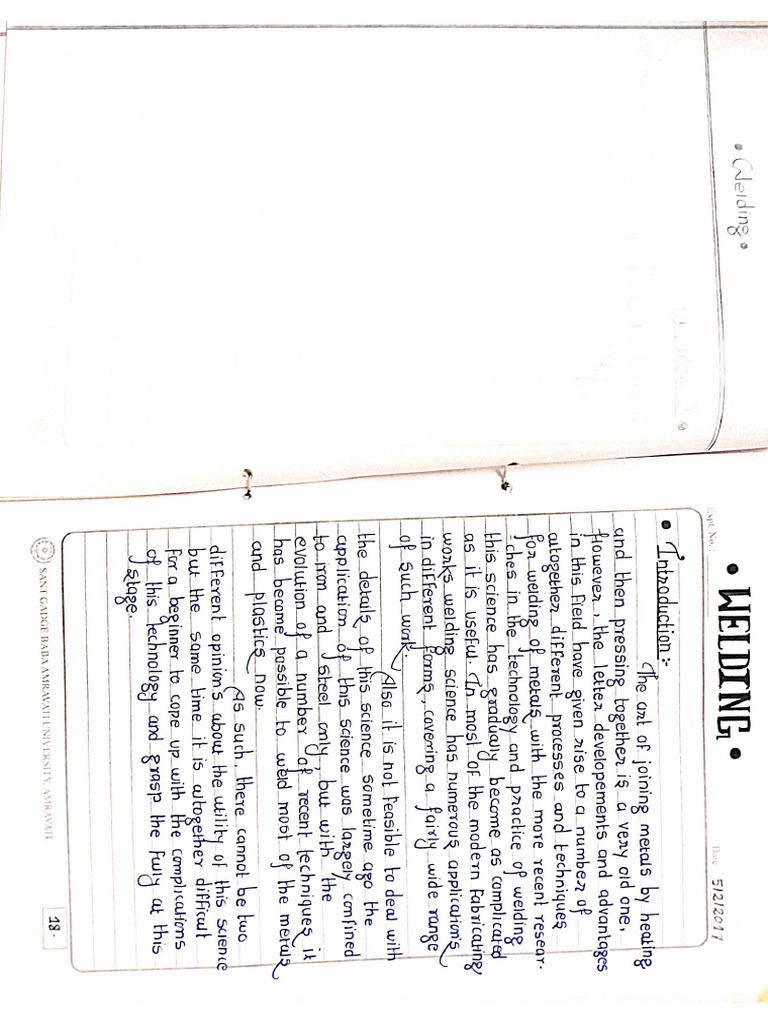 • Welding •
Expt. No.:
• WELDING •
Date 5/2/2017
• Introduction :-
The art of joining metals by heating
and then pressing together is a very old one.
However, the letter developements and advantages
in this field have given rise to a number of
autogether different processes and techniques
for welding of metals with the more recent resear-
ches in the technology and practice of welding
this science has gradually become as complicated
as it is useful. In most of the modern fabricating,
works welding science has numerous applications
in different forms, covering a fairly wide range
of such work.
Also it is not feasible to deal with
the details of this science sometime ago the
application of this science was largely confined
to iron and steel only, but with the
evolution of a number of recent techniques it
has become possible to weld most of the metals
and plastics now.
As such, there cannot be two
different opinions about the utility of this science
but the same time it is altogether difficult
for a beginner to cope up with the complications
of this technology and grasp the fully at this
stage.
SANT GADGE BABA AMRAVATI UNIVERSITY, AMRAVATI
18.